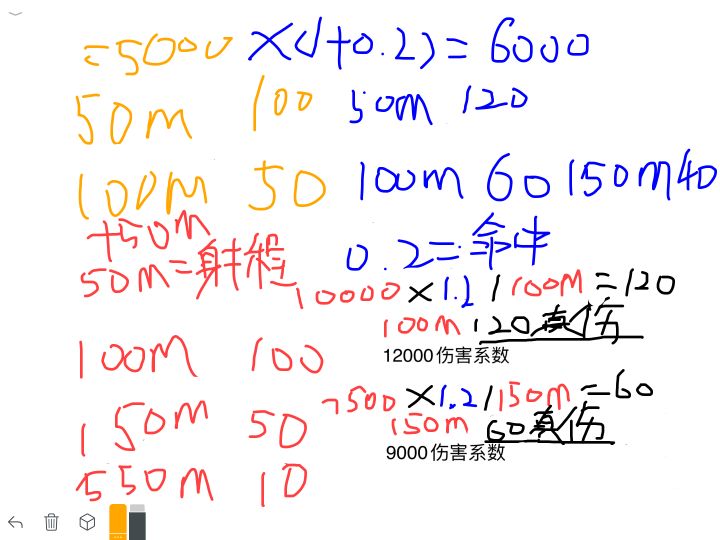 =5000 ×(1+0.2)=6000
50m 100 50m 120
100m 50 100m 60 150m 40
+50m
50m=射程 0.2=命中
10000×1.2/100m=120
100m 120真伤
12000伤害系数
100m 100
7500×1.2/150m=60
150m 50 150m 60真伤
9000伤害系数
550m 10